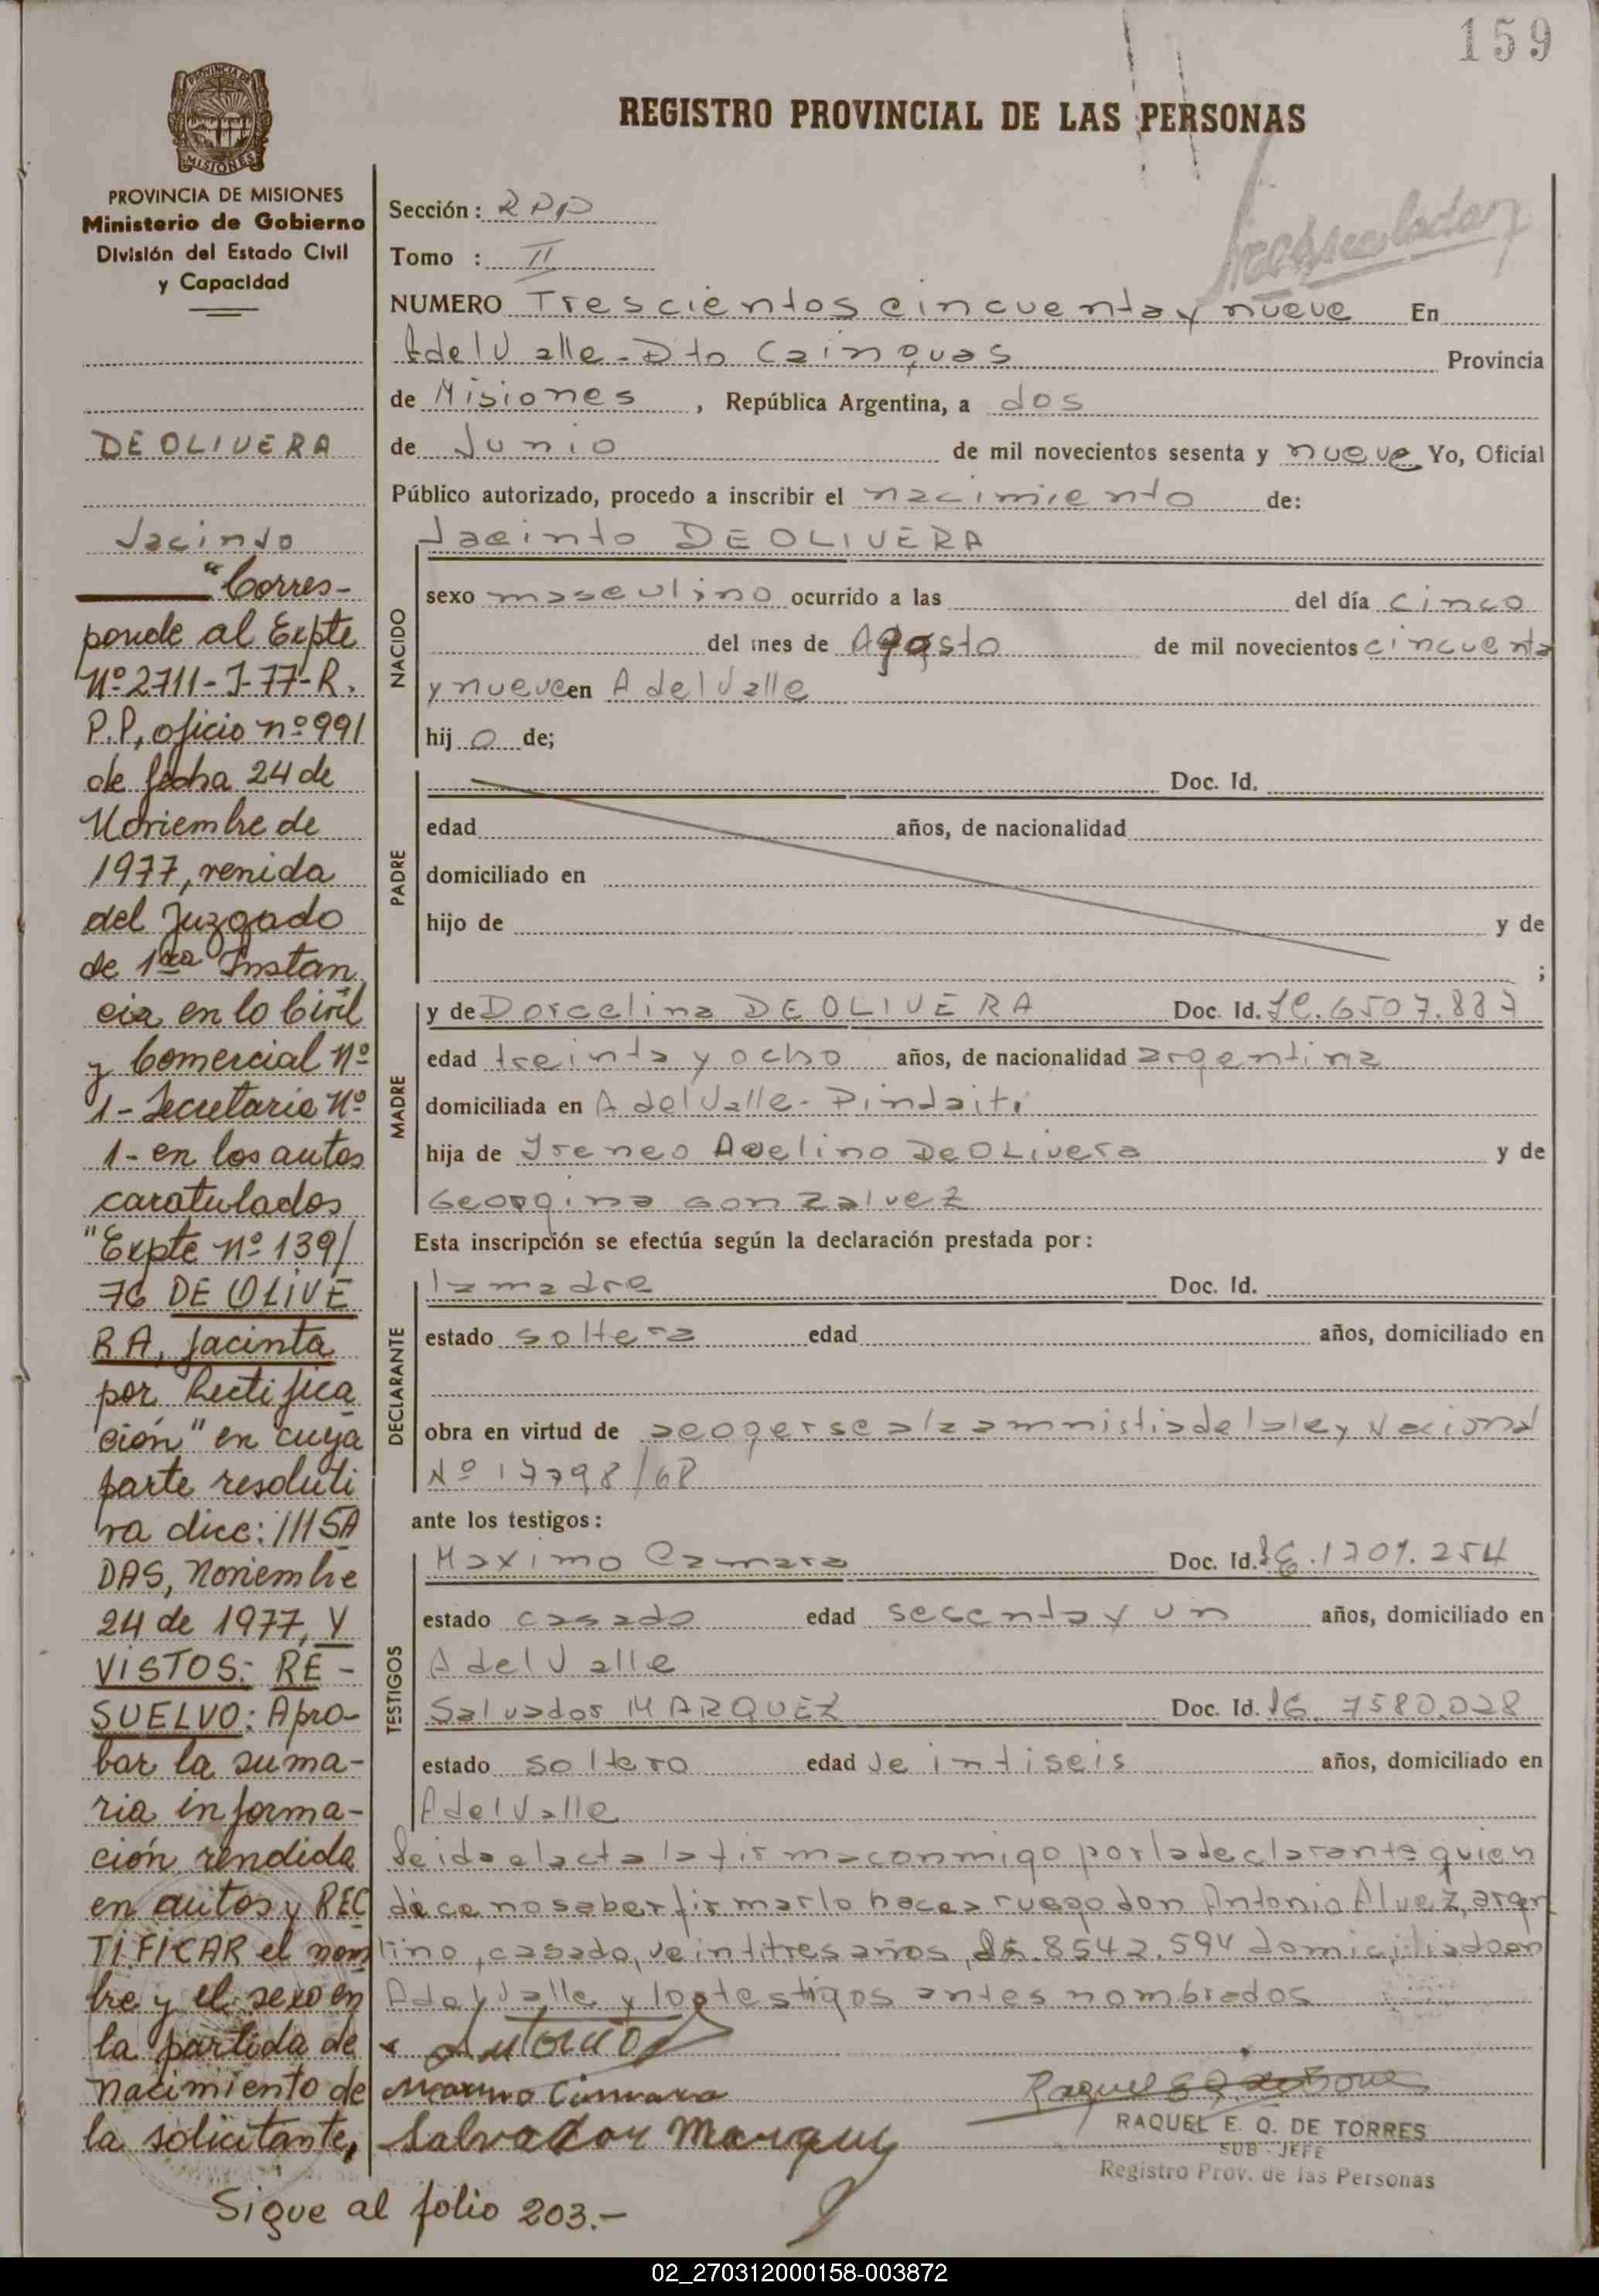 159
PROVINCIA DE
MISIONES
REGISTRO PROVINCIAL DE LAS PERSONAS
PROVINCIA DE MISIONES
Ministerio de Gobierno
División del Estado Civil
y Capacidad
DE OLIVERA
Jacinto
"Corres-
ponde al Expte
Nº 2711-J-77-R.
P.P, oficio nº 991
de fecha 24 de
Noviembre de
1977, venida
del Juzgado
de 1ra Instan
cia en lo Civil
y Comercial Nº
1- Secretaria Nº
1- en los autos
caratulados
"Expte Nº 139/
76 DE OLIVE
RA, Jacinta
por Rectifica
ción" en cuya
parte resoluti
va dice: ///SA
DAS, Noviembre
24 de 1977, Y
VISTOS:- RE-
SUELVO: Apro-
bar la suma-
ria informa-
ción rendida
en autos y REC
TIFICAR el nom
bre y el sexo en
la partida de
nacimiento de
la solicitante,
Sigue al folio 203.-
Sección: RPP
Tomo : II
NUMERO Trescientos cincuenta y nueve En
A del Valle - Dto Cainguas Provincia
de Misiones, República Argentina, a dos
de Junio de mil novecientos sesenta y nueve Yo, Oficial
Público autorizado, procedo a inscribir el nacimiento de:
Jacinto DE OLIVERA
NACIDO
sexo masculino ocurrido a las del día cinco
del mes de Agosto de mil novecientos cincuenta
y nueve en A del Valle
hijo de;
PADRE
Doc. Id.
edad años, de nacionalidad
domiciliado en
hijo de y de
;
MADRE
y de Dorcelina DE OLIVERA Doc. Id. 6507.887
edad treinta y ocho años, de nacionalidad argentina
domiciliada en A del Valle - Pindaiti
hija de Ireneo Avelino De OLivera y de
Georgina Gonzalvez
Esta inscripción se efectúa según la declaración prestada por:
DECLARANTE
la madre Doc. Id.
estado soltera edad años, domiciliado en
obra en virtud de acogerse a la amnistia de la ley Nacional
Nº 17798/68
ante los testigos:
TESTIGOS
Maximo Camara Doc. Id. 1701.254
estado casado edad sesenta y un años, domiciliado en
A del Valle
Salvador MARQUEZ Doc. Id. 7580.028
estado soltero edad veintiseis años, domiciliado en
A del Valle
Leida el acta la firma conmigo por la declarante quien
dice no saber firmar lo hace a ruego don Antonio Alvez, argen
tino, casado, veintitres años, 8542.594 domiciliado en
A del Valle y los testigos antes nombrados
Antonio
Maximo Camara
Salvador Marquez
RAQUEL E. Q. DE TORRES
SUB - JEFE
Registro Prov. de las Personas
02_270312000158-003872